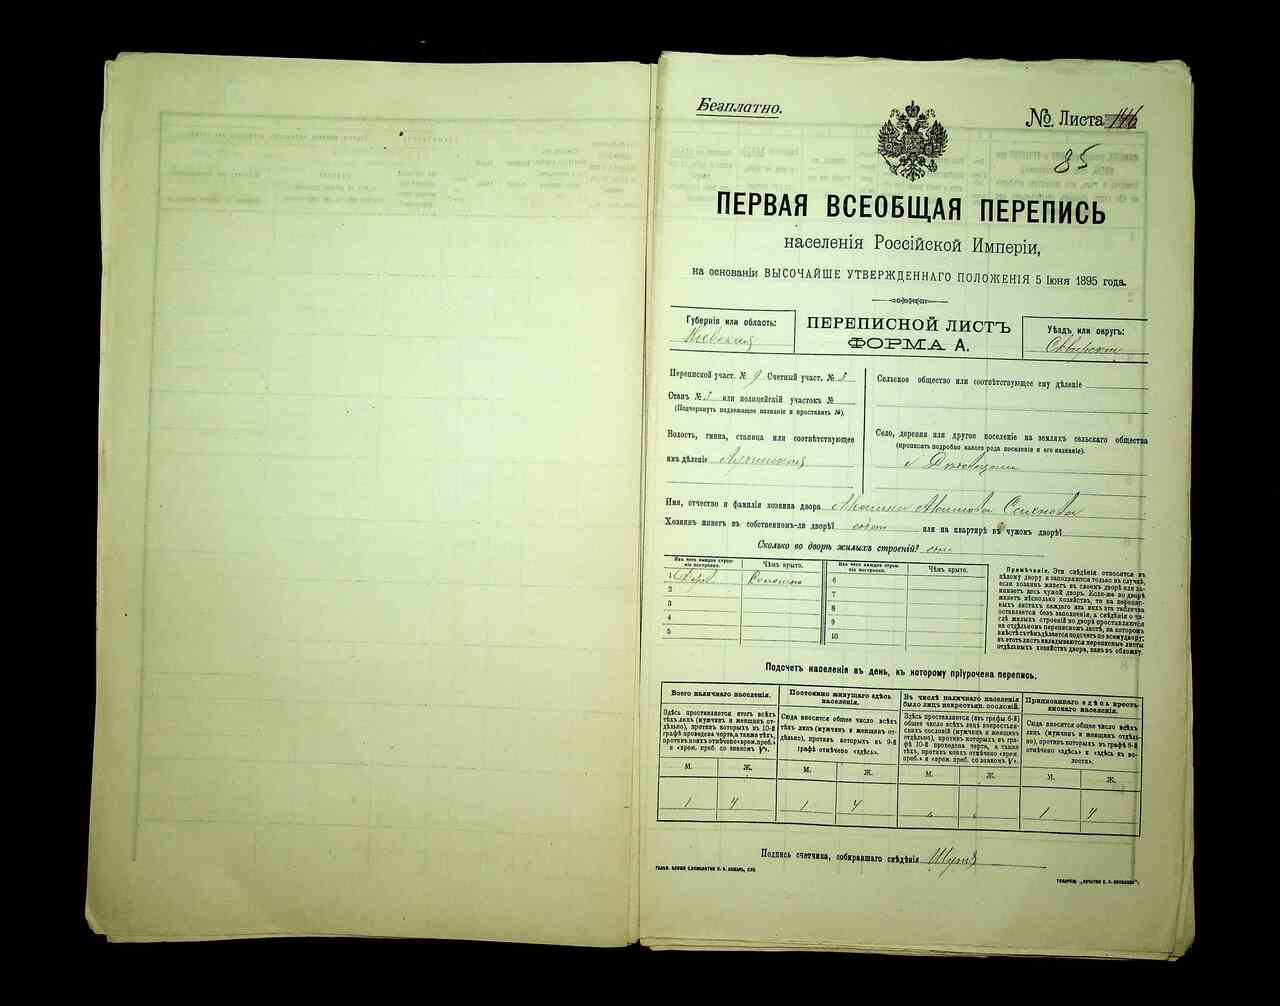 Безплатно.
№ Листа 146
85
ПЕРВАЯ ВСЕОБЩАЯ ПЕРЕПИСЬ
населенія Россійской Имперіи,
на основаніи ВЫСОЧАЙШЕ УТВЕРЖДЕННАГО ПОЛОЖЕНІЯ 5 Іюня 1895 года.
Губернія или область:
Кіевская
ПЕРЕПИСНОЙ ЛИСТЪ
ФОРМА А.
Уѣздъ или округъ:
Сквирскій
Переписной участ. № 9 Счетный участ. № 3
Станъ № 3 или полицейскій участокъ №
(Подчеркнуть надлежащее названіе и проставить №).
Волость, гмина, станица или соотвѣтствующее
имъ дѣленіе
Сельское общество или соотвѣтствующее ему дѣленіе
Село, деревня или другое поселеніе на земляхъ сельскаго общества
(прописать подробно какого рода поселеніе и его названіе).
Имя, отчество и фамилія хозяина двора
Хозяинъ живетъ въ собственномъ-ли дворѣ? или на квартирѣ въ чужомъ дворѣ?
Сколько во дворѣ жилыхъ строеній?
Изъ чего каждое строеніе построено.
Чѣмъ крыто.
Изъ чего каждое строеніе построено.
Чѣмъ крыто.
1 Дерев Соломою
2
3
4
5
6
7
8
9
10
Примѣчаніе. Эти свѣдѣнія относятся къ
цѣлому двору и заполняются только въ случаѣ,
если хозяинъ живетъ въ своемъ дворѣ или занимаетъ
весь чужой дворъ. Если-же во дворѣ
живетъ нѣсколько хозяйствъ, то на переписныхъ
листахъ каждаго изъ нихъ эта табличка
оставляется безъ заполненія, а свѣдѣнія о числѣ
жилыхъ строеній во дворѣ проставляются
на отдѣльномъ переписномъ листѣ, на которомъ
вмѣстѣ съ тѣмъ дѣлается подсчетъ по всему двору;
въ этотъ листъ вкладываются переписные листы
отдѣльныхъ хозяйствъ двора, какъ въ обложку.
Подсчетъ населенія въ день, къ которому пріурочена перепись.
Всего наличнаго населенія.
Здѣсь проставляется итогъ всѣхъ
тѣхъ лицъ (мужчинъ и женщинъ отдѣльно),
противъ которыхъ въ 10-й
графѣ проведена черта, а также тѣхъ,
противъ коихъ отмѣчено «врем. преб.»
и «врем. преб. со знакомъ V».
Постоянно живущаго здѣсь населенія.
Сюда вносится общее число всѣхъ
тѣхъ лицъ (мужчинъ и женщинъ отдѣльно),
противъ которыхъ въ 9-й
графѣ отмѣчено «здѣсь».
Въ числѣ наличнаго населенія
было лицъ некрестьян. сословій.
Здѣсь проставляется (изъ графы 6-й)
общее число всѣхъ лицъ некрестьянскихъ
сословій (мужчинъ и женщинъ
отдѣльно), противъ которыхъ въ графѣ
10-й проведена черта, а также
тѣхъ, противъ коихъ отмѣчено «врем.
преб.» и «врем. преб. со знакомъ V».
Приписаннаго здѣсь крестьянскаго населенія.
Сюда вносится общее число всѣхъ
лицъ (мужчинъ и женщинъ отдѣльно),
противъ которыхъ въ графѣ 8-й
отмѣчено «здѣсь» и «здѣсь въ волости».
М. Ж. М. Ж. М. Ж. М. Ж.
1 4 1 4 „ „ 1 4
Подпись счетчика, собиравшаго свѣдѣнія